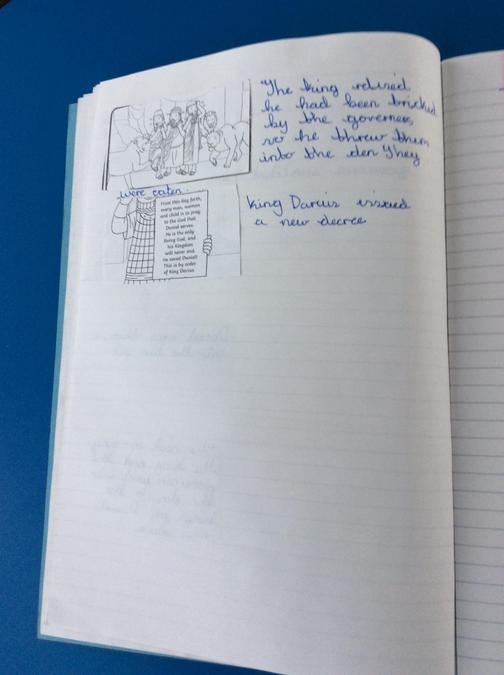 The king relised
he had been tricked
by the governers
so he threw them
into the den They
were eaten.
From this day forth,
every man, woman
and child is to pray
to the God that
Daniel serves.
He is the only
living God, and
his Kingdom
will never end.
He saved Daniel!
This is by order
of King Darius
King Darius issued
a new decree